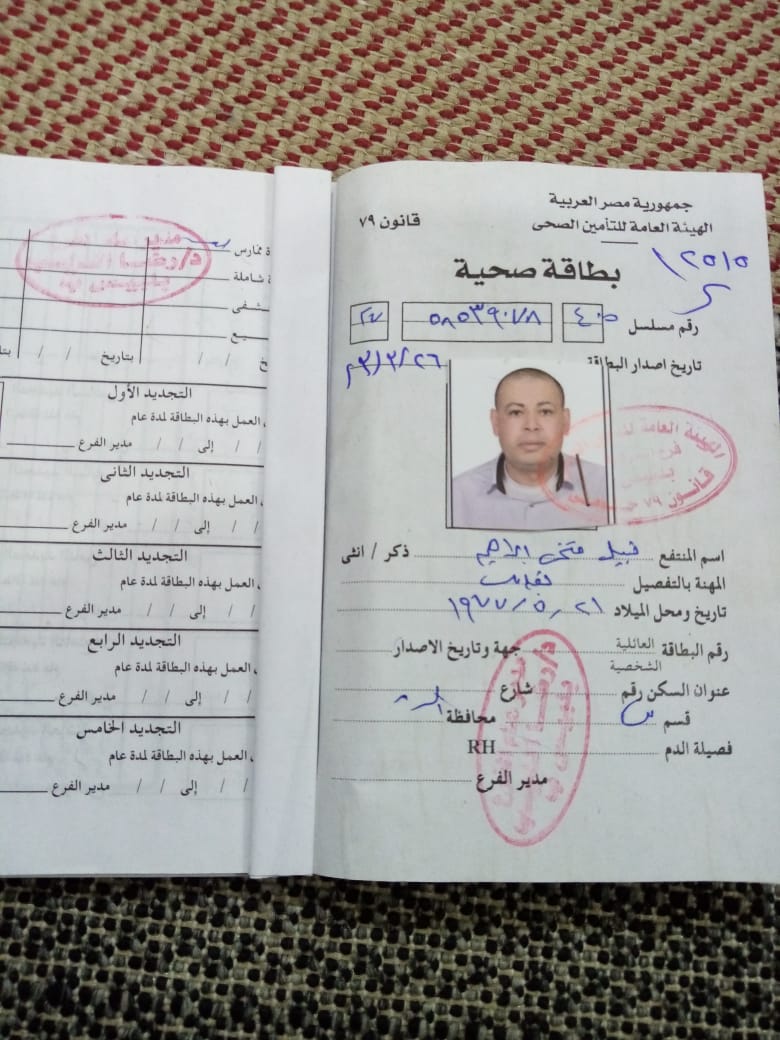 جمهورية مصر العربية
الهيئة العامة للتأمين الصحى
قانون ٧٩
بطاقة صحية
١٢٥١٥
رقم مسلسل ٤٠٥ ٥٨٥٣٩٠٧٨ ٢٧
تاريخ اصدار البطاقة
اسم المنتفع نبيل فتحى ابراهيم ذكر / انثى
المهنة بالتفصيل
تاريخ ومحل الميلاد ٢١ / ٥ / ١٩٧٧
رقم البطاقة العائلية الشخصية جهة وتاريخ الاصدار
عنوان السكن رقم شارع
قسم محافظة
فصيلة الدم RH
مدير الفرع
الهيئة العامة
قانون ٧٩
ة ممارس
ة شاملة
شفى
يع
خ / / بتاريخ / /
التجديد الأول
العمل بهذه البطاقة لمدة عام
/ / إلى / / مدير الفرع
التجديد الثانى
العمل بهذه البطاقة لمدة عام
/ / إلى / / مدير الفرع
التجديد الثالث
العمل بهذه البطاقة لمدة عام
/ / إلى / / مدير الفرع
التجديد الرابع
العمل بهذه البطاقة لمدة عام
/ / إلى / / مدير الفرع
التجديد الخامس
العمل بهذه البطاقة لمدة عام
/ / إلى / / مدير الفرع